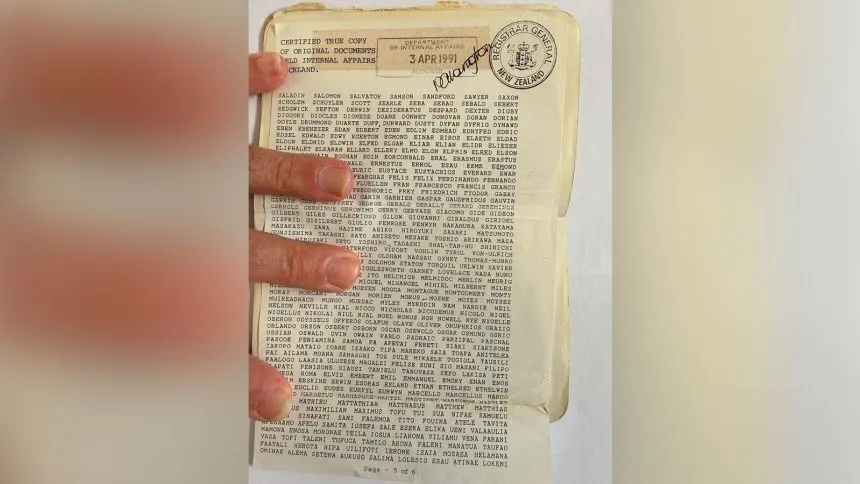 CERTIFIED TRUE COPY
OF ORIGINAL DOCUMENTS
HELD INTERNAL AFFAIRS
AUCKLAND.
DEPARTMENT
OF INTERNAL AFFAIRS
3 APR 1991
AUCKLAND
REGISTRAR GENERAL
NEW ZEALAND
SALADIN SALOMON SALVATOR SAMSON SANDFORD SAWYER SAXON
SCHOLEM SCHUYLER SCOTT SEARLE SEBA SEBAG SEBALD SEBERT
SEDGWICK SEFTON DERWIN DESIDERATUS DESPARD DEXTER DIGBY
DIGGORY DIOCLES DIOMEDE DOANE DONNET DONOVAN DORAN DORIAN
DOYLE DRUMMOND DUARTE DUFF DURWARD DUSTY DYFAN DYFRIG DYNAWD
EBEN EBENEZER EDAN EDBERT EDEN EDLIN EDMEAD EDNYFED EDRIC
EDSEL EDWALD EDWY EGERTON EGMOND EINAR EIROS ELAETH ELDAD
ELDON ELDRID ELDWIN ELFED ELGAR ELIAB ELIAN ELIDR ELIEZER
ELIPHALET ELKANAH ELLARD ELLERY ELMO ELON ELPHIN ELRED ELSON
EOGHAN EOIN EORCONBALD ERAL ERASMUS ERASTUS
ERNESTUS ERROL ESAU ESME ESMOND
EUSTACE EUSTACHIOS EVERARD EWAN
FEARGHAS FELIS FELIX FERDINANDO FERNANDO
FLUELLEN FRAN FRANCESCO FRANCIS GRANCO
FREY FRIEDRICH FYODOR GABAY
GARIN GARNIER GASPAR GAUDFRIDUS GAUVIN
GAWAIN GENE GEOFFREY GEORGE GERALD GERALLT GERARD GEREMINUS
GERROLD GERMINUS GERONIMO GERRY GERVASE GIACOMO GIDE GIDEON
GILBERT GILES GILLECRIOSD GILOW GIOVANNI GIRALDUS GIRIOEL
GISFRID GISILBERT GIULIO PENROSE PENWYN NAKAMURA KATAYAMA
MASAKAZU SAWA HAJIME ABIKO HIROYUKI SASAKI MATSUMOTO
GUNJISHIMA TAKASHI SATO ANISETO MESAKE YOSHIO ARIKAWA MASA
HIROSAKI SATO YOSHIRO TADASHI SHAL-TAN-HU SHINICHI
WATERFORD VIPONT VOHLIN TYROL VON-ULRICH
OLDHAM NASSAU OXNEY THOMAS-MUNRO
SOLOMON STATON TORQUIL URLWIN XAVIER
WIGGLESWORTH GARNET LOVELACE NADA NUNU
ITO MELCHIOR MELMIDOC MERLIN MEURIG
MIGUEL MIHANGEL MIHIEL MILBERT MILES
MOESEN MOGGA MONTAGUE MONTGOMERY MONTY
MORAY MORCANT MORGAN MORIEN MORUS MOSHE MOYES MOYSES
MUIREADHACH MUNGO MURDAC MYLES MYRDDIN NAM NARDIE NEIL
NELSON NEVILLE NIAL NICCO NICHOLAS NICODEMUS NICOLO NIGEL
NIGELLUS NIKOLAI NIUL NJAL NOEL NONUS NOR NOWELL NYE NYGELLE
OBERON ODYSSEUS OFFEROS OLAFUR OLAVE OLIVER ONUPHRIOS ORAZIO
ORLANDO ORSON OSBERT OSBORN OSCAR OSEWOLD OSGAR OSMUND OSRIC
OSSIAN OSWALD OVIN OWAIN PABLO PADRAIC PARZIFAL PASCHAL
PASCOE PENIAMINA SAMOA PA AFETAI FERETI SIAKI SIAKISONE
IAKOPO MATAIO IOANE ISAAKO TIPA MAREKO SAIA TOAFA ANITELEA
PAI AILAMA MOANA SAMASONI TOZ PULE MIKAELE TOGIOLA TAUSILI
FAALOGO LAASIA ULUSESE MAGALEI FELISE SUNI SIO MASANI FILIPO
PENISONE SIAOSI TANIELU TANUVASA SEFO LAKISA PETI
ROMA ELVIS EMBERT EMIL EMMANUEL EMORY ENAN ENOS
ERSKINE ERWIN ESDRAS ESLAND ETHAN ETHELRED ETHELWIN
EUCLID EUDES EURFYL EURWYN MARCELLO MARCELLUS MARCO
MATHIEU MATTATHIAN MATTHAEUS MATTHEW MATTHIAS
MAXIMILIAN MAXIMUS TOFU TUI SUA NIFAE SAMUELU
SINAPATI SANI FALEMOA TITO FOUINA ATELE TAVITA
APELU SAMITA IOSEFA SALE ESERA ELIKA UENI VALAAULIA
MAMONA ENOSA MORONAE TEILA IOSUA LIAHONA VILIAMU VENA FARANI
VASA TOPI TALENI TUFUGA TAMILO ARONA FALENI MANATUA TAUFAO
FAATALI HEROTA HIPA UILIFOTI IEROME ISAIA MOSAEA HELAMANA
OMINAE ALEMA SETEMA AUKUSO SALIMA LOLESIO ESAU ATINAE LOKENI
Page - 5 of 6